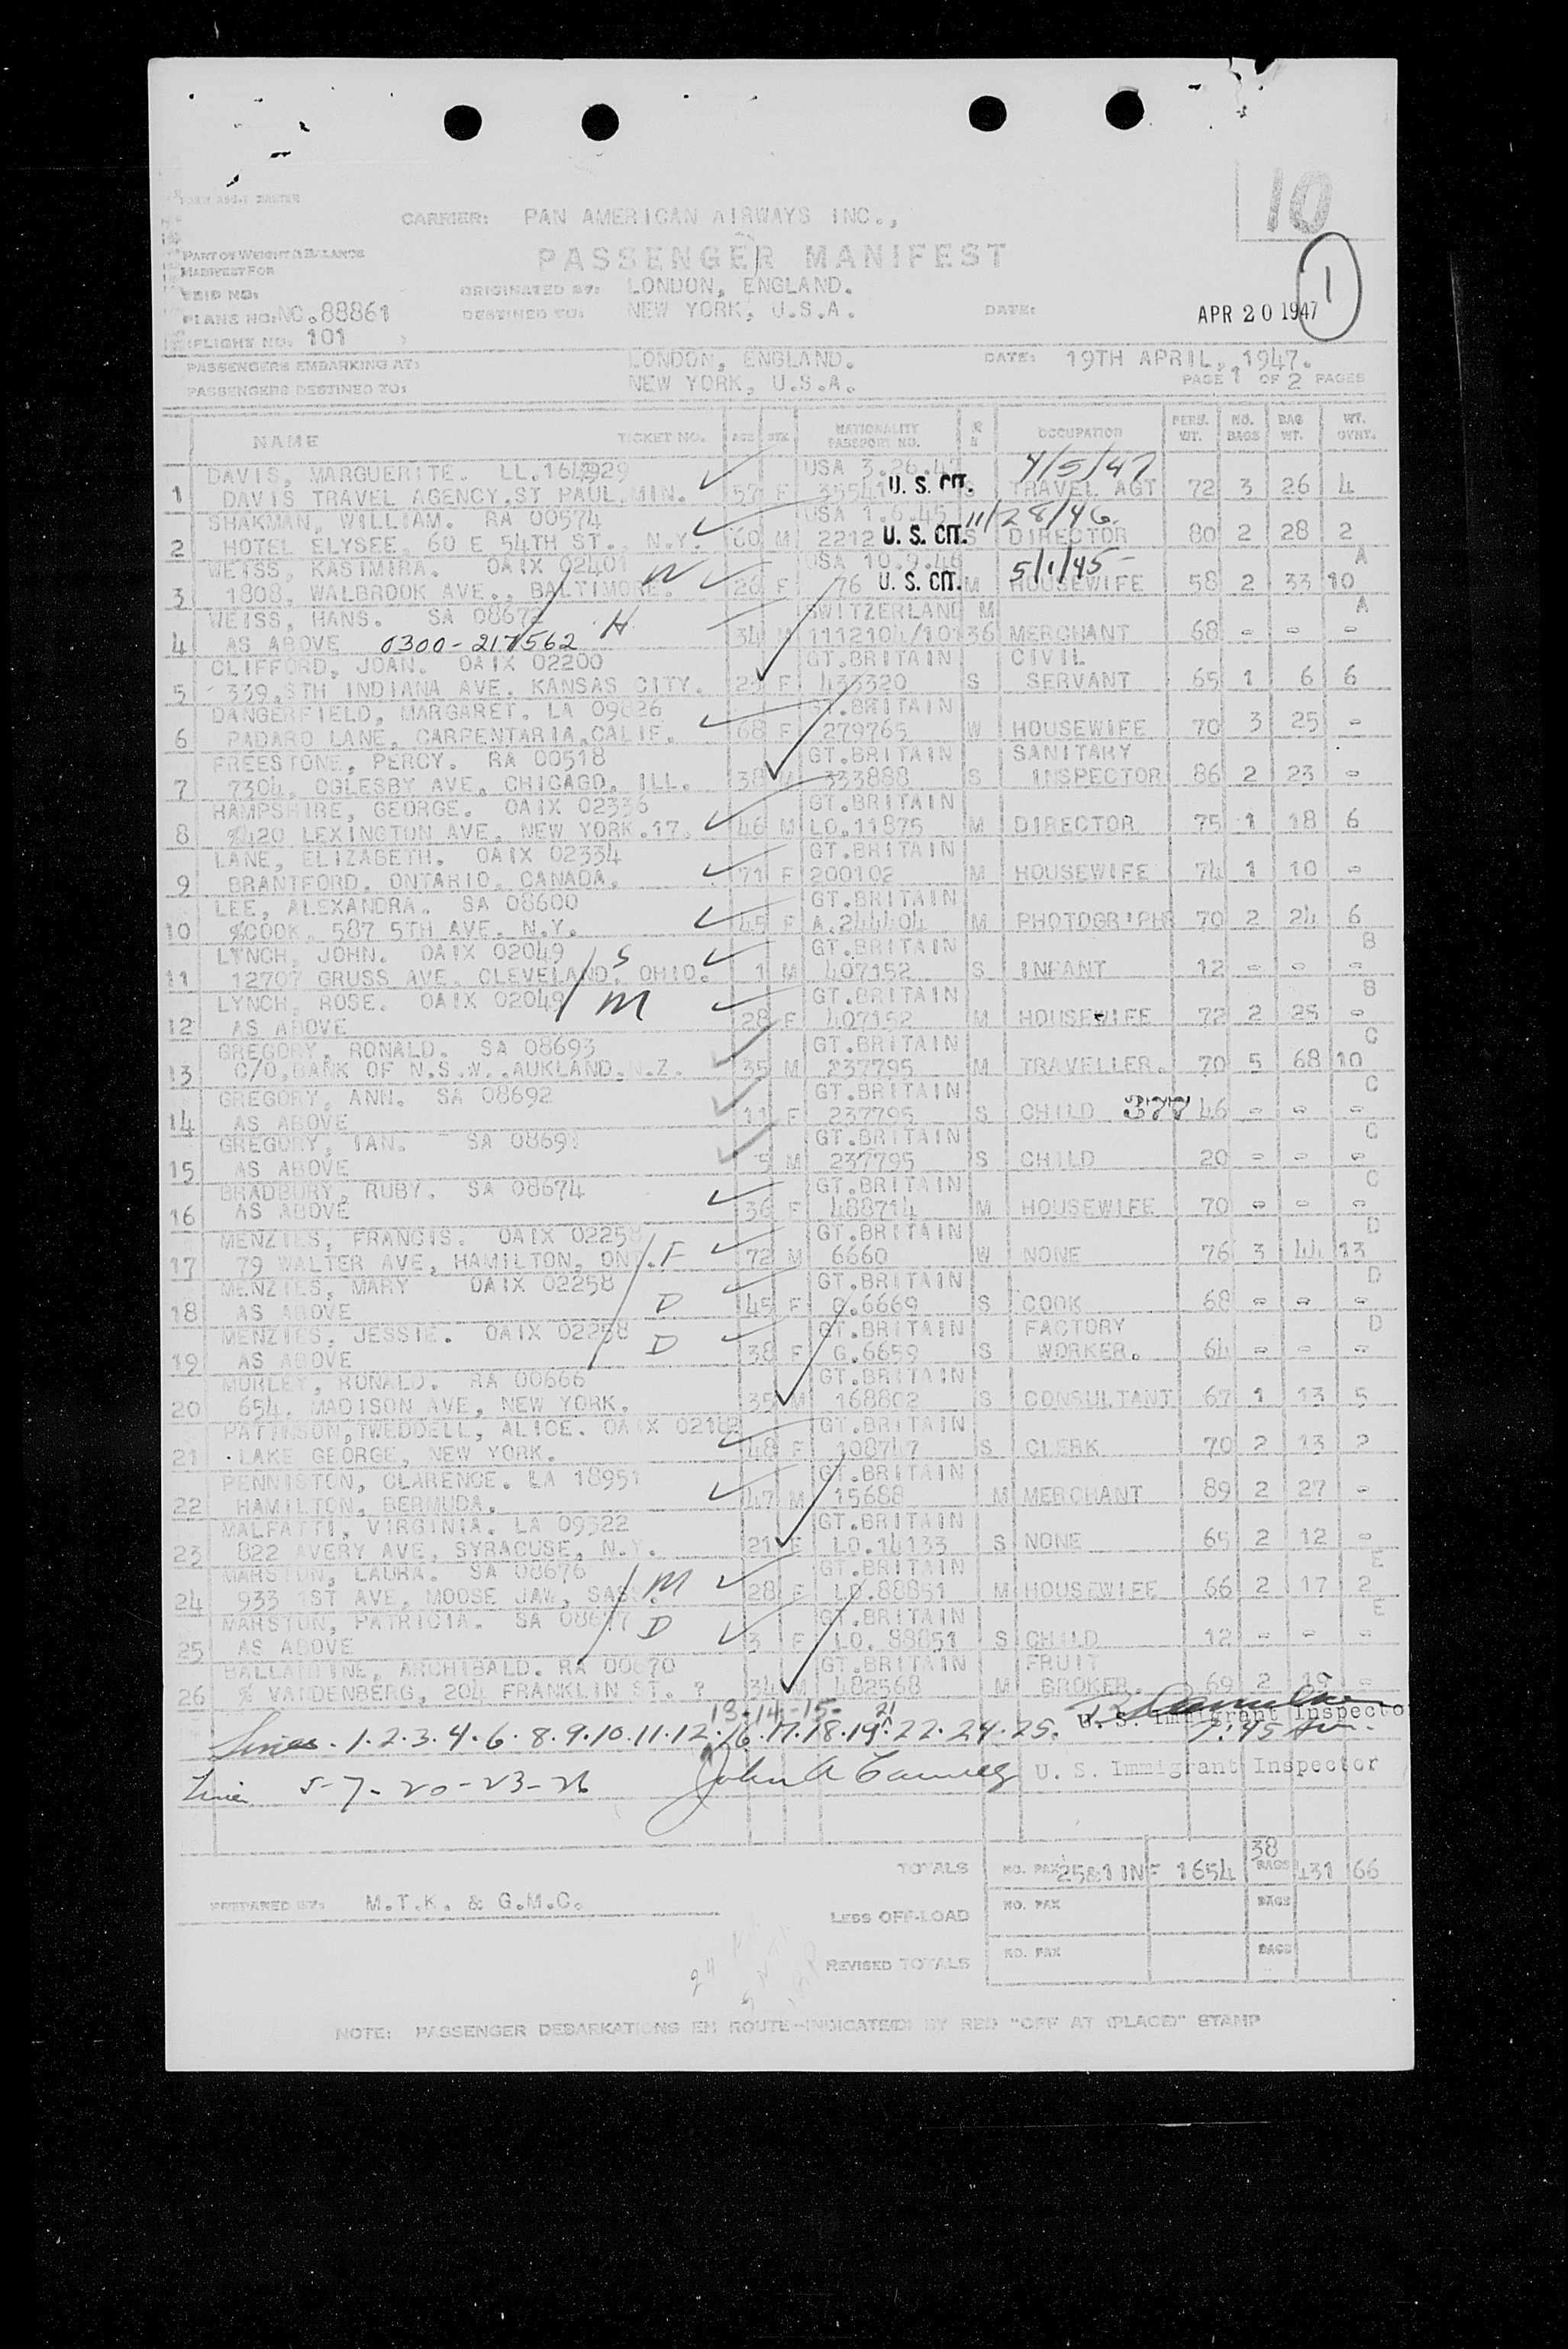 10
CARRIER: PAN AMERICAN AIRWAYS INC.,
PASSENGER MANIFEST
PART OF WEIGHT & BALANCE
MANIFEST FOR
ORIGINATED BY: LONDON, ENGLAND.
PLANE NO: NC.88861 DESTINED TO: NEW YORK, U.S.A. DATE: APR 20 1947 1
FLIGHT NO. 101
PASSENGERS EMBARKING AT: LONDON, ENGLAND. DATE: 19TH APRIL, 1947.
PASSENGERS DESTINED TO: NEW YORK, U.S.A. PAGE 1 OF 2 PAGES
NAME TICKET NO. AGE SEX NATIONALITY PASSPORT NO. OCCUPATION PERS. WT. NO. BAGS BAG WT. WT. OVWT.
DAVIS, MARGUERITE. USA 3.26.47 4/5/47
1 DAVIS TRAVEL AGENCY,ST PAUL,MIN. 57 F U. S. CIT. S TRAVEL AGT 72 3 26 4
SHAKMAN, WILLIAM. RA 00574 USA 1.6.45 11/28/46
2 HOTEL ELYSEE, 60 E 54TH ST., N.Y. 60 M 2212 U. S. CIT. S DIRECTOR 80 2 28 2
WEISS, KASIMIRA. OAIX 02401 W USA 10.9.46 5/1/45 A
3 1808, WALBROOK AVE., BALTIMORE. 26 F 76 U. S. CIT. M HOUSEWIFE 58 2 33 10
WEISS, HANS. SA 08672 H SWITZERLAND M A
4 AS ABOVE 0300-217562 34 M 1112104/10136 MERCHANT 68 - - -
CLIFFORD, JOAN. OAIX 02200 GT.BRITAIN CIVIL
5 339,STH INDIANA AVE, KANSAS CITY. F 433320 S SERVANT 65 1 6 6
DANGERFIELD, MARGARET. LA 09826 GT.BRITAIN
6 PADARO LANE, CARPENTARIA,CALIF. 68 F 279765 W HOUSEWIFE 70 3 25 -
FREESTONE, PERCY. RA 00518 GT.BRITAIN SANITARY
7 7304, OGLESBY AVE, CHICAGO, ILL. 38 M 333888 S INSPECTOR 86 2 23 -
HAMPSHIRE, GEORGE. OAIX 02336 GT.BRITAIN
8 %420 LEXINGTON AVE, NEW YORK.17. 46 M LO.11875 M DIRECTOR 75 1 18 6
LANE, ELIZABETH. OAIX 02334 GT.BRITAIN
9 BRANTFORD, ONTARIO, CANADA. 71 F 200102 M HOUSEWIFE 74 1 10 -
LEE, ALEXANDRA. SA 08600 GT.BRITAIN
10 %COOK, 587 5TH AVE. N.Y. 45 F A.244404 M PHOTOGRIPHR 70 2 24 6
LYNCH, JOHN. OAIX 02049 S GT.BRITAIN B
11 12707 GRUSS AVE, CLEVELAND, OHIO. 1 M 407152 S INFANT 12 - - -
LYNCH, ROSE. OAIX 02049 M GT.BRITAIN B
12 AS ABOVE 28 F 407152 M HOUSEWIFE 72 2 25 -
GREGORY, RONALD. SA 08693 GT.BRITAIN C
13 C/O,BANK OF N.S.W.,AUKLAND.N.Z. 35 M 237795 M TRAVELLER. 70 5 68 10
GREGORY, ANN. SA 08692 GT.BRITAIN C
14 AS ABOVE 11 F 237795 S CHILD 46 - - -
GREGORY, IAN. SA 08691 GT.BRITAIN C
15 AS ABOVE 5 M 237795 S CHILD 20 - - -
BRADBURY, RUBY. SA 08674 GT.BRITAIN C
16 AS ABOVE 36 F 488714 M HOUSEWIFE 70 - - -
MENZIES, FRANCIS. OAIX 02258 F GT.BRITAIN D
17 79 WALTER AVE, HAMILTON, ONT. 72 M 6660 W NONE 76 3 44 13
MENZIES, MARY OAIX 02258 D GT.BRITAIN D
18 AS ABOVE 45 F G.6669 S COOK 68 - - -
MENZIES, JESSIE. OAIX 02258 D GT.BRITAIN FACTORY D
19 AS ABOVE 38 F G.6659 S WORKER. 64 - - -
MORLEY, RONALD. RA 00666 GT.BRITAIN
20 654, MADISON AVE, NEW YORK. 35 M 168802 S CONSULTANT 67 1 13 5
PATINSON,TWEDDELL, ALICE. OAIX 02182 GT.BRITAIN
21 LAKE GEORGE, NEW YORK. 48 F 108747 S CLERK 70 2 13 2
PENNISTON, CLARENCE. LA 18951 GT.BRITAIN
22 HAMILTON, BERMUDA. 47 M 15688 M MERCHANT 89 2 27 -
MALFATTI, VIRGINIA. LA 09322 GT.BRITAIN
23 822 AVERY AVE, SYRACUSE, N.Y. 21 F LO.14133 S NONE 65 2 12 -
MARSTON, LAURA. SA 08676 M GT.BRITAIN E
24 933 1ST AVE, MOOSE JAW, SASS. 28 F LO.88851 M HOUSEWIFE 66 2 17 2
MARSTON, PATRICIA. SA 08677 D GT.BRITAIN E
25 AS ABOVE 3 F LO. 88851 S CHILD 12 - - -
BALLANTINE, ARCHIBALD. RA 00670 GT.BRITAIN FRUIT
26 % VANDENBERG, 204 FRANKLIN ST. ? 34 M 482568 M BROKER. 69 2 19 -
13-14-15- 21
Lines. 1.2.3.4.6.8.9.10.11.12.16.17.18.19.22.24.25. U. S. Immigrant Inspecto
Lines 5-7-20-23-26 John A U. S. Immigrant Inspector
TOTALS NO. PAX 25&1 INF 1654 38 BAGS 431 66
PREPARED BY: M.T.K. & G.M.C.
LESS OFF-LOAD NO. PAX BAGS
REVISED TOTALS NO. PAX BAGS
NOTE: PASSENGER DEBARKATIONS EN ROUTE INDICATED BY RED "OFF AT (PLACE)" STAMP